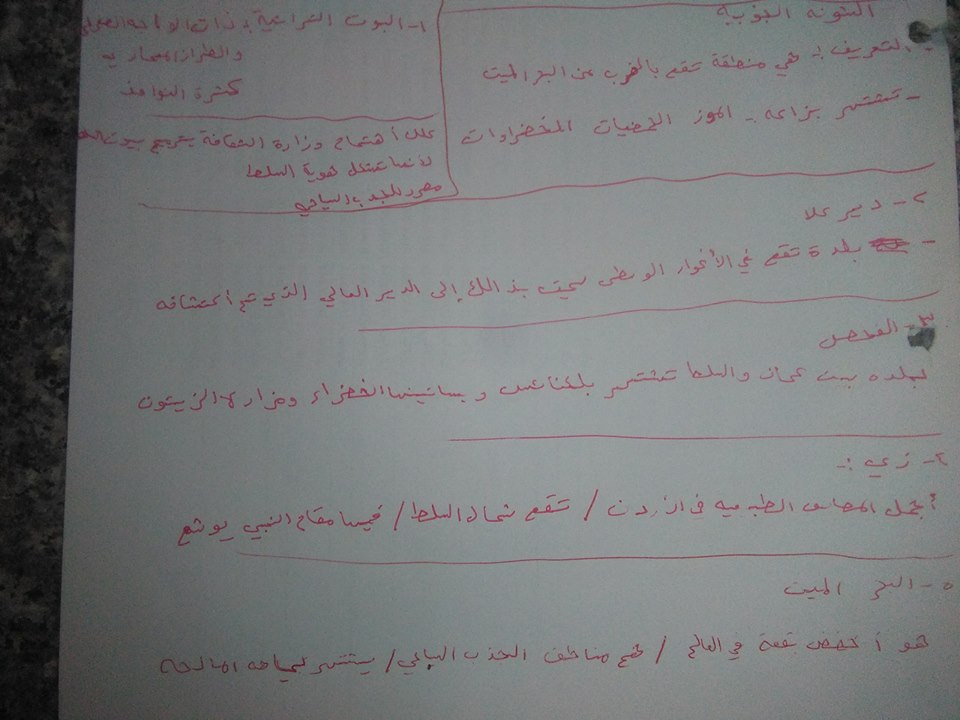 الشونه الجنوبية
- التعريف :- هي منطقة تقع بالغرب من البحر الميت
- تشتهر بزراعه :- الموز الحمضيات الخضراوات
1- البيوت التراثية ذات
والطراز المعماريه
كثرة النوافذ
علل اهتمام وزارة الثقافة بترميم بيوت
لانها تمثل هوية السلط
مصدر للجذب السياحي
2- دير علا
- بلدة تقع في الأغوار الوسطى سميت بذالك إلى الدير العالي الذي تم اكتشافه
3- الفحيص
بلده بين عمان والسلط تشتهر بلكنائس وبساتينها الخضراء ومزارع الزيتون
4- زي :-
أجمل المناطق الطبيعيه في الاردن / تقع شمال السلط / فيها مقام النبي يوشع
5- البحر الميت
هو أخفض بقعة في العالم / من مناطق الجذب السياحي / يشتهر بمياهه المالحه